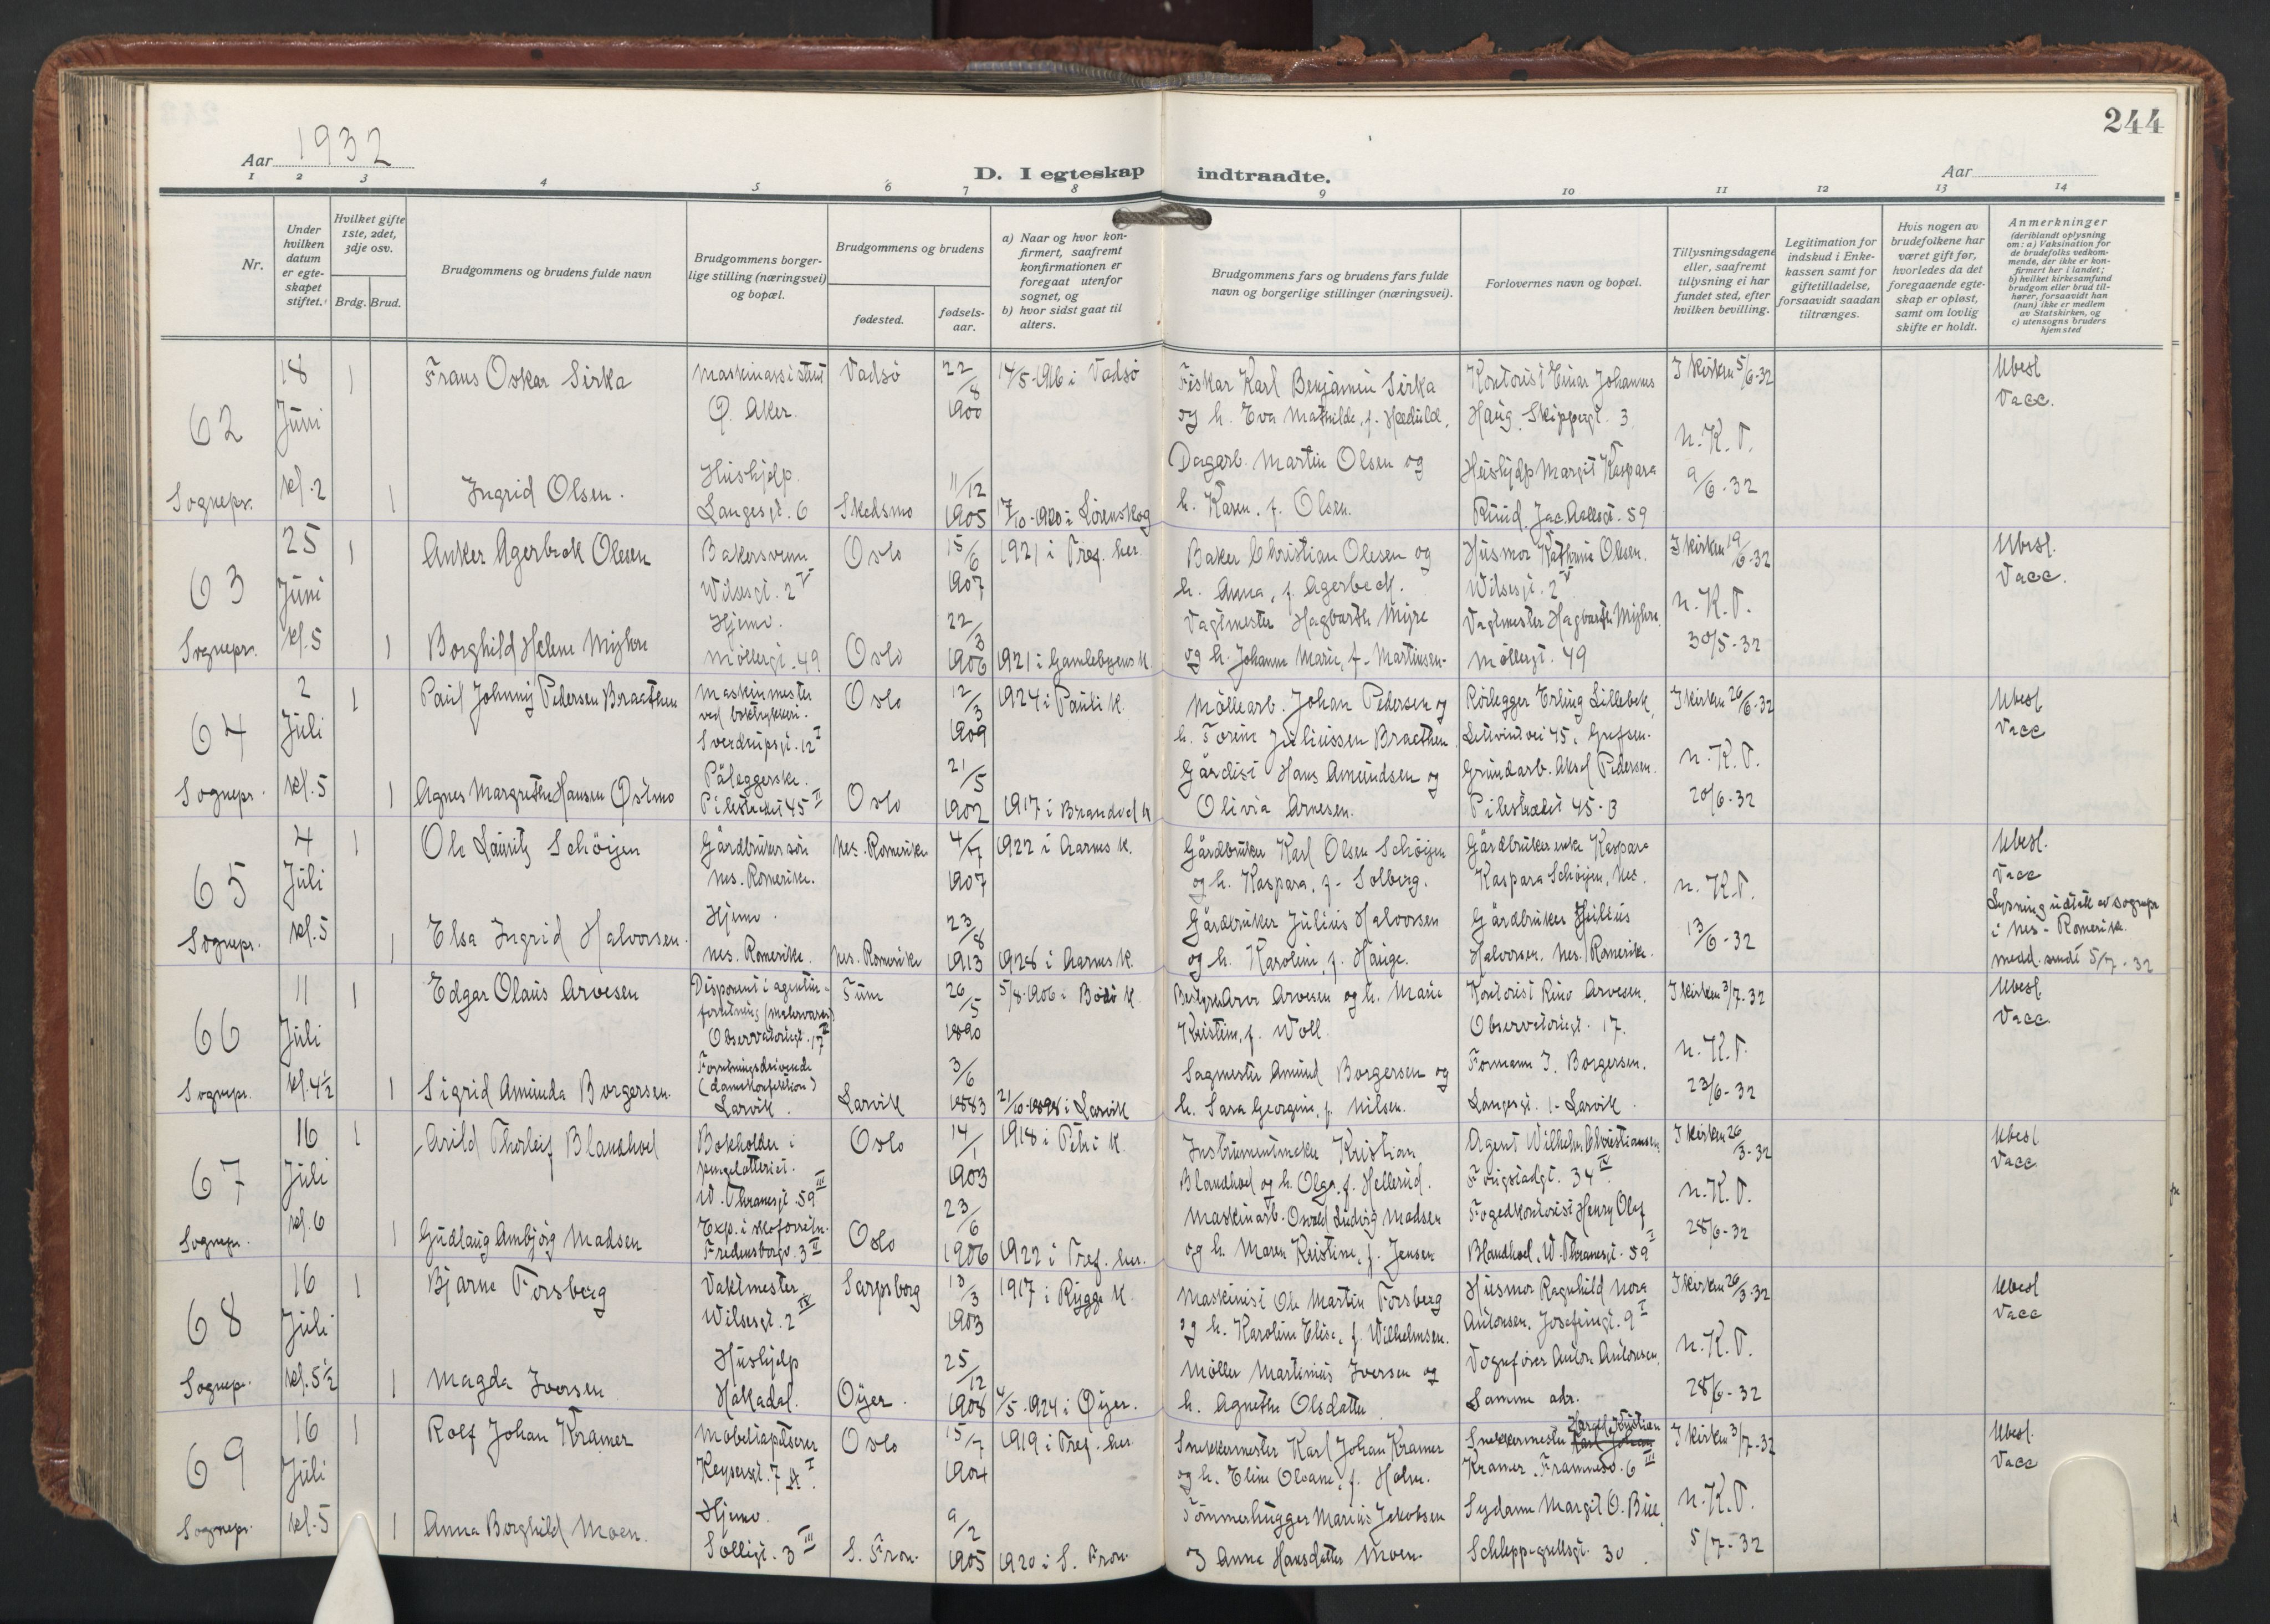 244
Aar 1932
D. I egteskap indtraadte.
Aar
1 2 3 4 5 6 7 8 9 10 11 12 13 14
Nr.
Under hvilken datum er egteskapet stiftet.
Hvilket gifte 1ste, 2det, 3dje osv.
Brdg. Brud.
Brudgommens og brudens fulde navn
Brudgommens borgerlige stilling (næringsvei) og bopæl.
Brudgommens og brudens
fødested.
fødselsaar.
a) Naar og hvor konfirmert, saafremt konfirmationen er foregaat utenfor sognet, og
b) hvor sidst gaat til alters.
Brudgommens fars og brudens fars fulde navn og borgerlige stillinger (næringsvei).
Forlovernes navn og bopæl.
Tillysningsdagene eller, saafremt tillysning ei har fundet sted, efter hvilken bevilling.
Legitimation for indskud i Enkekassen samt for giftetilladelse, forsaavidt saadan tiltrænges.
Hvis nogen av brudefolkene har været gift før, hvorledes da det foregaaende egteskap er opløst, samt om lovlig skifte er holdt.
Anmerkninger
(deriblandt oplysning om: a) Vaksination for de brudefolks vedkommende, der ikke er konfirmert her i landet; b) hvilket kirkesamfund brudgom eller brud tilhører, forsaavidt han (hun) ikke er medlem av Statskirken, og c) utensogns bruders hjemsted
62 Sognepr.
18 Juni kl. 2
1 Frans Oskar Sirka
Maskinassistent Ø. Aker.
Vadsö 22/8 1900
14/5-1916 i Vadsö
Fiskar Karl Benjamin Sirka
og h. Eva Mathilde, f.
Kontorist Einar Johannes
Haug. Skippergt. 3
I kirken 5/6-32
n. K. T. 9/6-32
Ubesl Vacc.
1 Ingrid Olsen.
Hushjelp. Langesgt. 6
Skedsmo 11/12 1905
17/10-1920 i Lörenskog
Dagarb. Martin Olsen og
h. Karen, f. Olsen.
Hushjelp Margit Kaspara
Ruud. Jac. Aallsgt. 59
63 Sognepr.
25 Juni kl. 5
1 Anker Agerbæk Olesen
Bakersvenn Wilsesgt. 2 V
Oslo 15/6 1907
1921 i Tref. her.
Baker Christian Olesen og
h. Anna, f. Agerbeck.
Husmor Kathrine Olesen.
Wilsesgt. 2 V
I kirken 19/6-32
n. K. T. 30/5-32
Ubesl. Vacc.
1 Borghild Helene Myhre
Hjemv. Möllergt. 49
Oslo 22/3 1906
1921 i Gamlebyens K.
Vagtmester Hagbarth Myre
og h. Johanne Marie, f. Martinsen
Vagtmester Hagbarth Myhre.
Möllergt. 49
64 Sognepr.
2 Juli kl. 5
1 Paul Johnny Pedersen Braathen
Maskinmester ved boktrykkeri. Sverdrupsgt. 12 I
Oslo 12/3 1909
1924 i Pauli K.
Möllearb. Johan Pedersen og
h. Torine Juliussen Braathen
Rörlegger Erling Lillebek,
45, Grefsen.
I kirken 26/6-32
n. K. T. 20/6-32
Ubesl Vacc
1 Agnes Margrethe Hansen Østmo
Påleggerske. Pilestrædet 45 II
Oslo 21/5 1902
1917 i Brandval K
Gårdist Hans Amundsen og
Olivia Arnesen.
Grundarb. Aksel Pedersen.
Pilestrædet 45-B
65 Sognepr.
4 Juli kl. 5
1 Ole Lauritz Schöyen
Gårdbruker sön Nes. Romerike.
Nes. Romerike 4/7 1907
1922 i Aarnes K.
Gårdbruker Karl Olsen Schöyen
og h. Kaspara, f. Solberg.
Gårdbruker enke Kaspara
Kaspara Schöyen, Nes.
n. K. T. 13/6-32
Ubesl. Vacc
Lysning utstedt av sognepr
i Nes - Romerike.
medd. sendt 5/7-32
1 Elsa Ingrid Halvorsen.
Hjemv. Nes. Romerike.
Nes. Romerike 23/8 1913
1928 i Aarnes K.
Gårdbruker Julius Halvorsen
og h. Karoline, f. Hauge.
Gårdbruker Julius
Halvorsen. Nes. Romerike.
66 Sognepr.
11 Juli kl. 4½
1 Edgar Olaus Arvesen
Disponent i agenturforretning (malervarer) Observatoriegt. 17 II
26/5 1890
5/8-1906 i Bodö K.
Arvesen og h. Marie
Kristine, f. Woll.
Kontorist Rino Arvesen.
Observatoriegt. 17.
I kirken 3/7-32
n. K. T. 23/6-32
Ubesl Vacc.
1 Sigrid Amunda Borgersen.
Forretningsdrivende (damekonfektion) Larvik.
Larvik 3/6 1883
21/10-1898 i Larvik
Sagmester Amund Borgersen og
h. Sara Georgine, f. Nilsen.
Formann J. Borgersen.
Langesgt. 1- Larvik.
67 Sognepr.
16 Juli kl. 6
1 Arild Thorleif Blandhoel
Bokholder i pengelotteriet. W. Thranesgt. 59 III
Oslo 14/1 1903
1918 i Petri K.
Instrumentmaker Kristian
Blandhoel og h. Olga, f. Hellerud.
Agent Wilhelm Christiansen.
Frogstadgt. 34 IV
I kirken 26/3-32
n. K. T. 28/6-32
Ubesl Vacc
1 Gudlaug Ambjörg Madsen
Exp. i skoforretn. Fredensborgv. 3 II
Oslo 23/6 1906
1922 i Tref. her.
Maskinarb. Oswald Ludvig Madsen
og h. Maren Kristine, f. Jensen
Fogedkontorist Henry Olaf
Blandhoel, W. Thranesgt. 59 I
68 Sognepr.
16 Juli kl. 5½
1 Bjarne Forsberg
Vaktmester Wilsesgt. 2 IV
Sarpsborg 13/3 1903
1917 i Rygge K.
Maskinist Ole Martin Forsberg
og h. Karoline Elise, f. Wilhelmsen.
Husmor Ragnhild Nora
Antonsen, Josefinegt. 9 I
I kirken 26/3-32
n. K. T. 28/6-32
Ubesl Vacc
1 Magda Iversen
Hushjelp Hakadal.
Öyer. 25/12 1908
4/5-1924 i Øyer.
Möller Martinius Iversen og
h. Agnethe Olsdatter
Vognförer Anton Antonsen.
Samme adr.
69 Sognepr.
16 Juli kl. 5
1 Rolf Johan Kramer
Möbeltapetserer Keysersgt. 7 A I
Oslo 15/7 1904
1919 i Tref. her
Snekkermester Karl Johan Kramer
og h. Eline Olsane, f. Holm.
Snekkermester Karl Johan Harald Kristian
Kramer. Framnesv. 6 III
I kirken 3/7-32
n. K. T. 5/7-32
Ubesl. Vacc
1 Anna Borghild Moen.
Hjemv. Solligt. 3 III
S. Fron. 9/2 1905
1920 i S. Fron.
Tömmerhugger Marius Jakobsen
Anne Hansdatter Moen.
Sydame Margit O. Bue.
Schleppegrellsgt. 30.